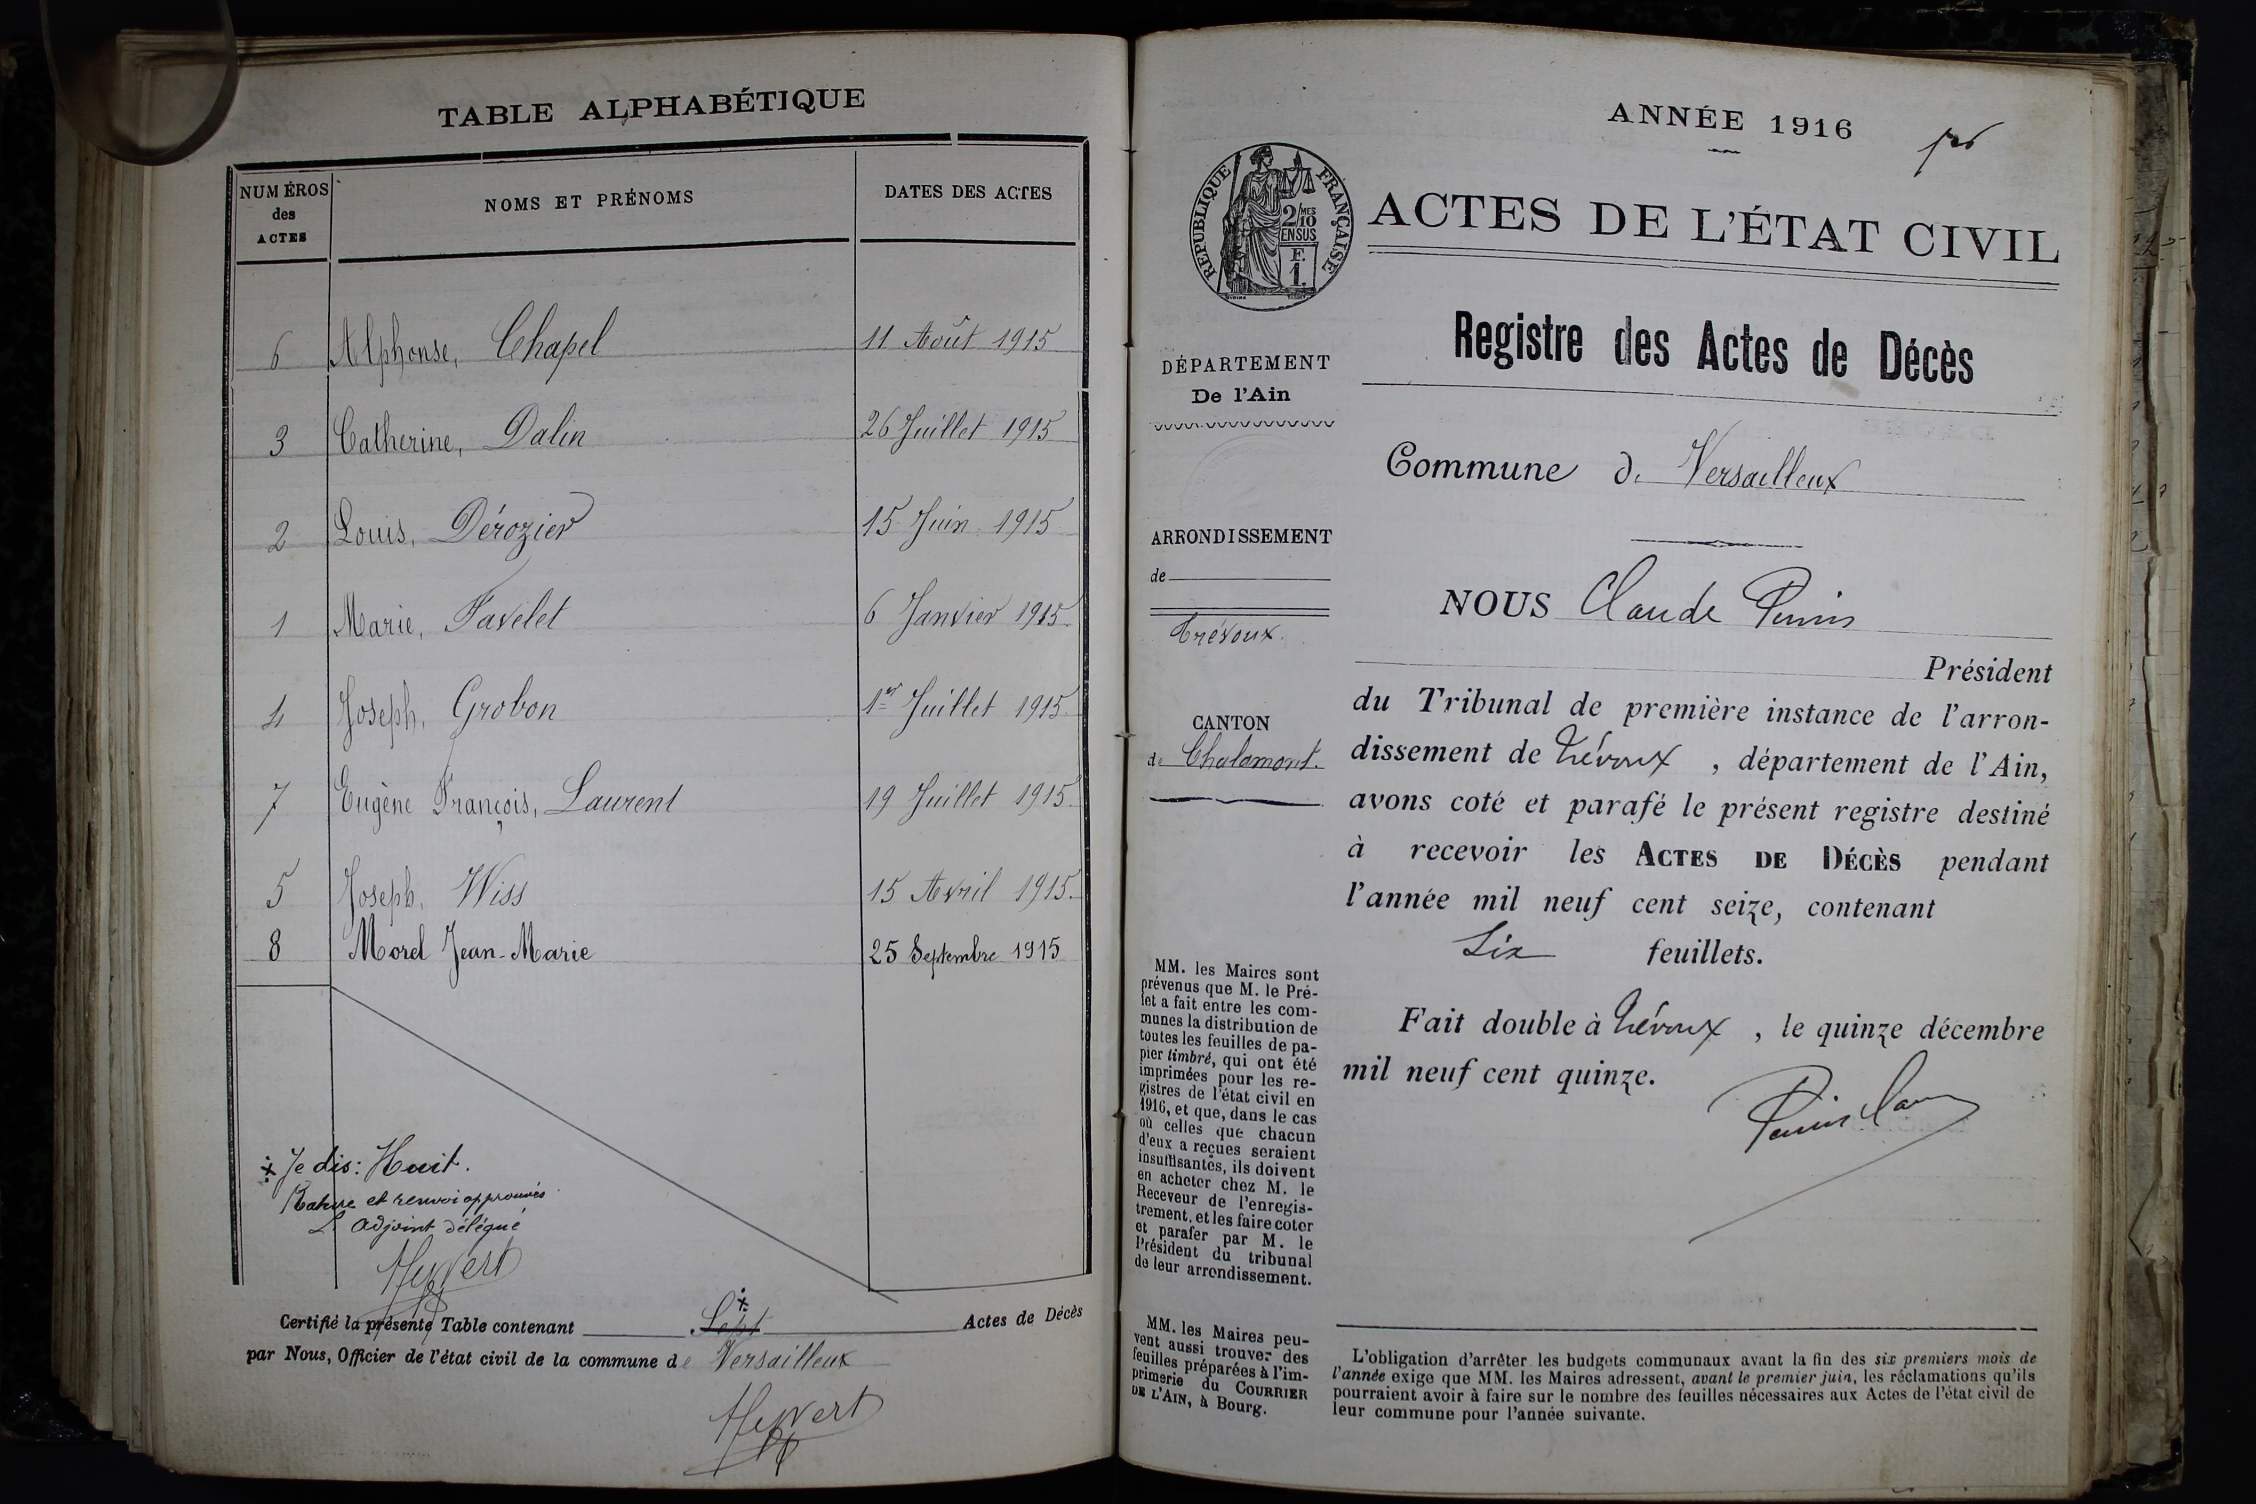 TABLE ALPHABÉTIQUE
NUMÉROS
des
ACTES
NOMS ET PRÉNOMS
DATES DES ACTES
6 Alphonse, Chapel 11 Août 1915
3 Catherine, Dalin 26 Juillet 1915
2 Louis, Dérozier 15 Juin 1915
1 Marie, Favelet 6 Janvier 1915
4 Joseph, Grobon 1er Juillet 1915
7 Eugène François, Laurent 19 Juillet 1915
5 Joseph, Wiss 15 Avril 1915
8 Morel Jean-Marie 25 Septembre 1915
Je dis: Huit.
Rature et renvoi approuvés
L'adjoint délégué
Certifié la présente Table contenant Sept Actes de Décès
par Nous, Officier de l'état civil de la commune de Versailleux
ANNÉE 1916
RÉPUBLIQUE FRANÇAISE
2/10MES
EN SUS
F.
1.
ACTES DE L'ÉTAT CIVIL
Registre des Actes de Décès
DÉPARTEMENT
De l'Ain
Commune de Versailleux
ARRONDISSEMENT
de
Trévoux.
CANTON
de Chalamont.
NOUS Claude
Président
du Tribunal de première instance de l'arron-
dissement de Trévoux, département de l'Ain,
avons coté et parafé le présent registre destiné
à recevoir les ACTES DE DÉCÈS pendant
l'année mil neuf cent seize, contenant
Six feuillets.
Fait double à Trévoux, le quinze décembre
mil neuf cent quinze.
MM. les Maires sont
prévenus que M. le Pré-
fet a fait entre les com-
munes la distribution de
toutes les feuilles de pa-
pier timbré, qui ont été
imprimées pour les re-
gistres de l'état civil en
1916, et que, dans le cas
où celles que chacun
d'eux a reçues seraient
insuffisantes, ils doivent
en acheter chez M. le
Receveur de l'enregis-
trement, et les faire coter
et parafer par M. le
Président du tribunal
de leur arrondissement.
MM. les Maires peu-
vent aussi trouver des
feuilles préparées à l'im-
primerie du COURRIER
DE L'AIN, à Bourg.
L'obligation d'arrêter les budgets communaux avant la fin des six premiers mois de
l'année exige que MM. les Maires adressent, avant le premier juin, les réclamations qu'ils
pourraient avoir à faire sur le nombre des feuilles nécessaires aux Actes de l'état civil de
leur commune pour l'année suivante.